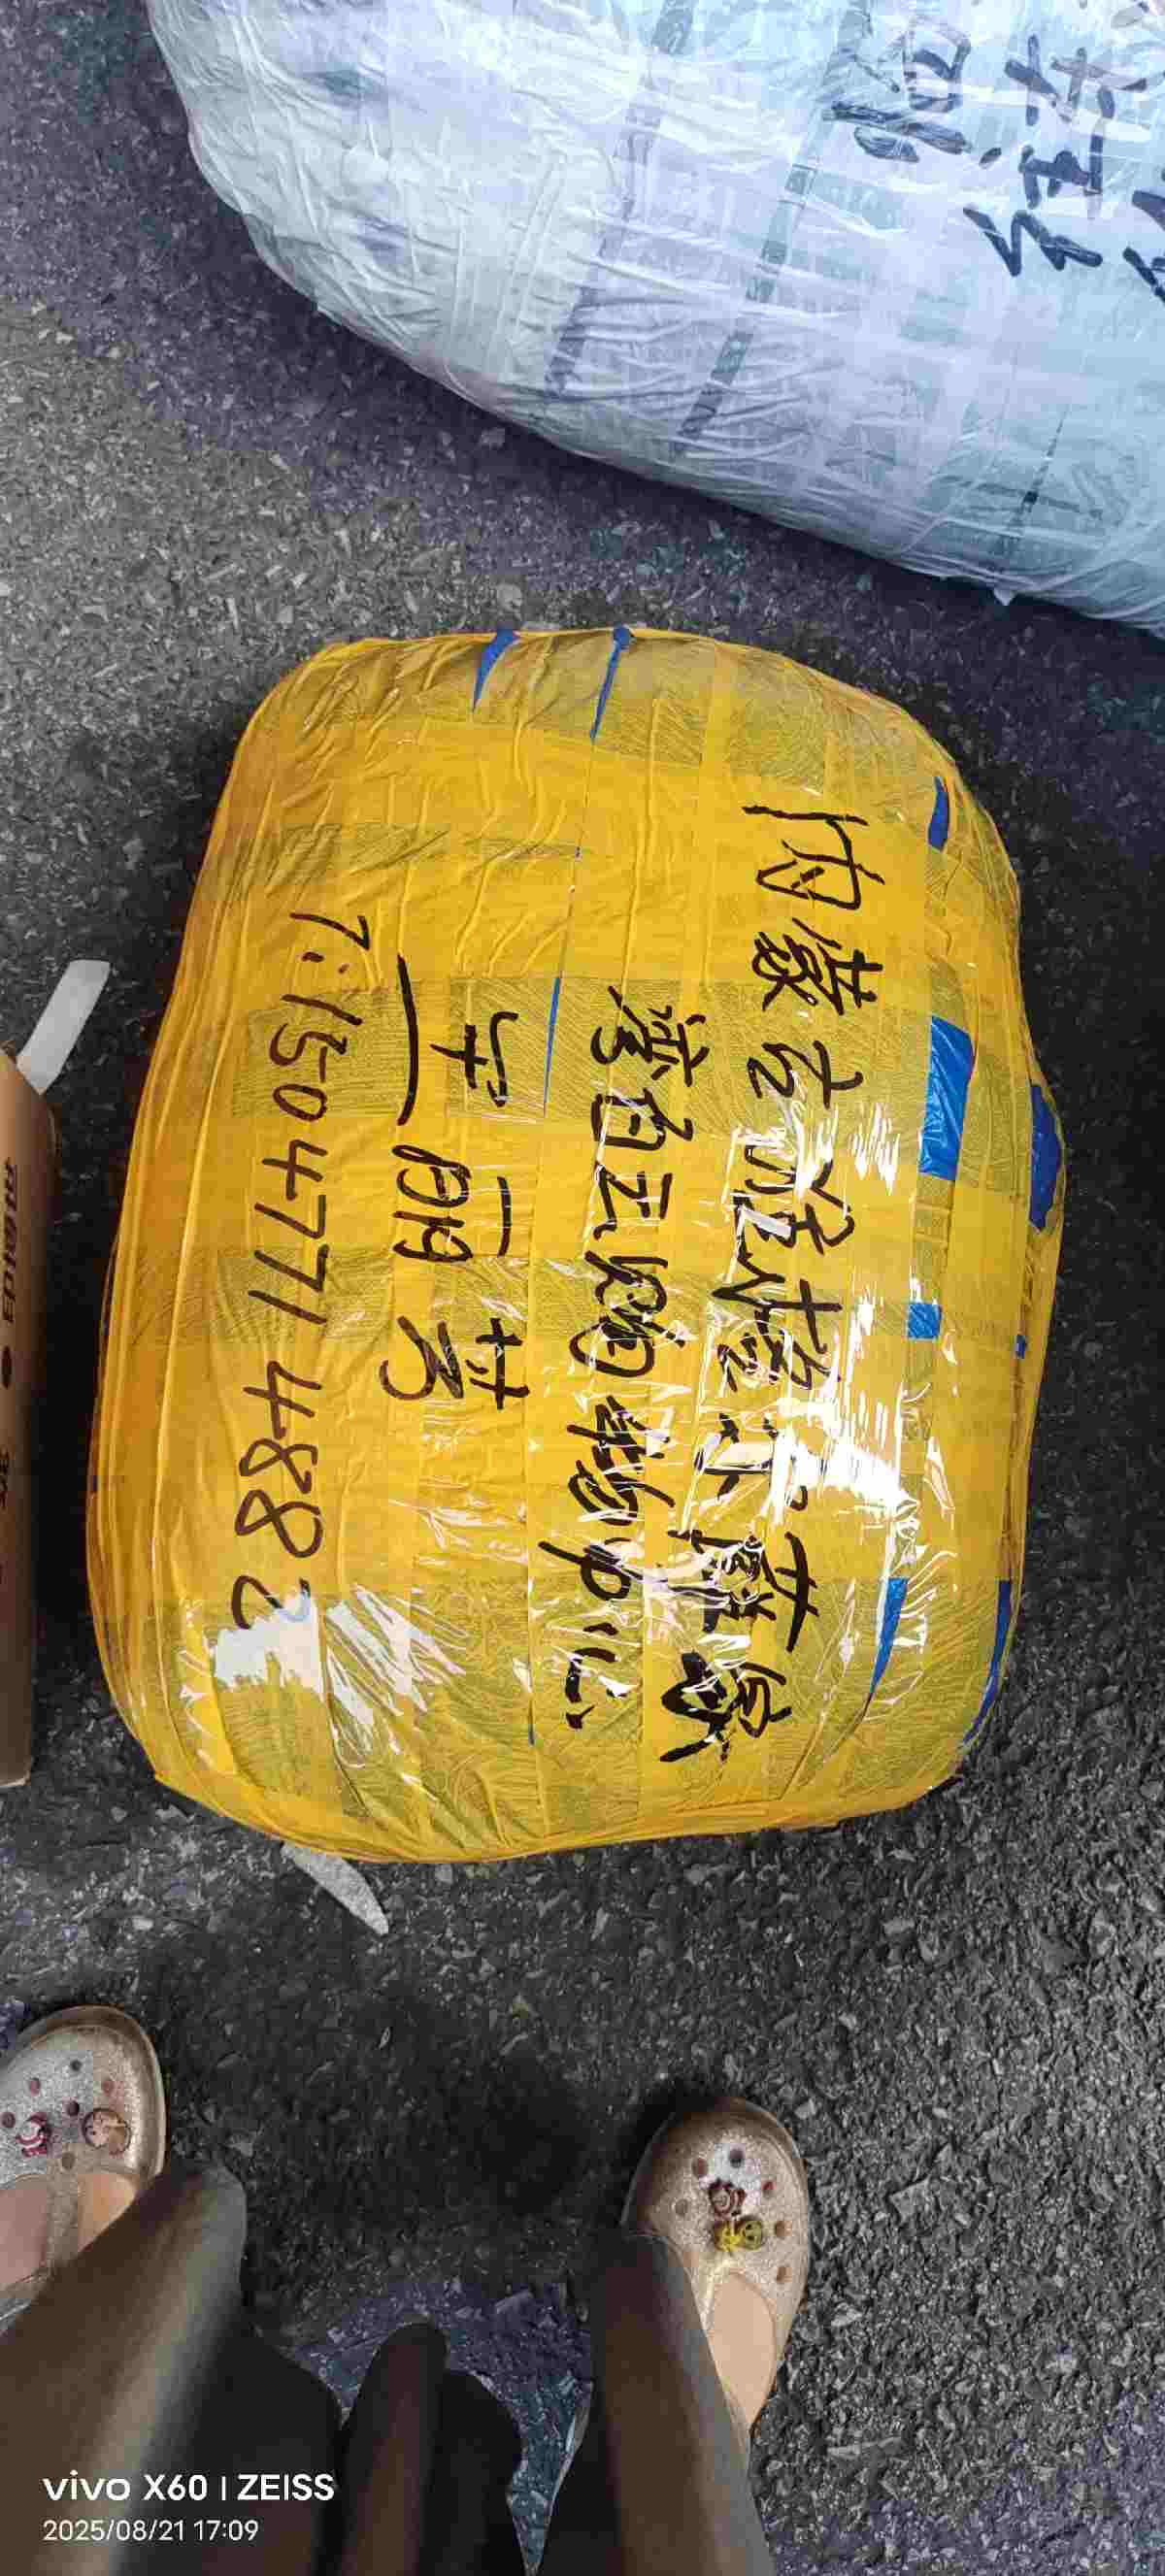 内蒙古准格尔旗薛家
湾白云购物中心
丽芳
T:15047714882
vivo X60 | ZEISS
2025/08/21 17:09